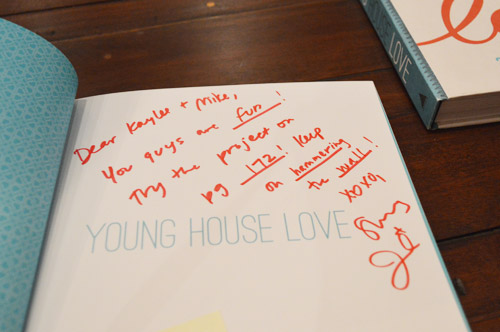 Dear Kaylee + Mike,
You guys are fun!
Try the project on
pg 172! Keep
on hammering
the wall!
xoxo,
YOUNG HOUSE LOVE
LOVE